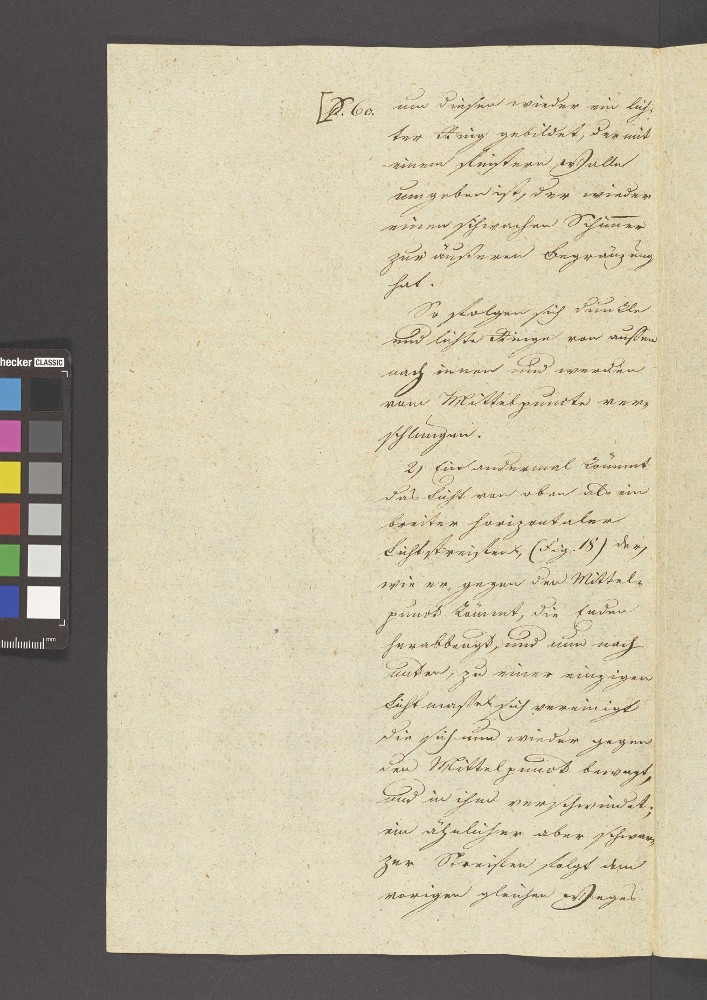 [p. 60.
um diesen wieder ein lich-
ter Ring gebildet, der mit
einem finstern Walle
umgeben ist, der wieder
einen schwachen Schim̅er
zur äußeren Begränzung
hat.
So folgen sich dunkle
und lichte Ringe von außen
nach innen und werden
vom Mittelpunkte ver-
schlungen.
2) Ein andermal kömmt
das Licht von oben als ein
breiter horizontaler
Lichtstreifen, (Fig. 18) der,
wie er, gegen den Mittel-
punct kömmt, die Enden
herabbeugt, und nun nach
unten, zu einer einzigen
Lichtmasse sich vereinigt
die sich nun wieder gegen
den Mittelpunct bewegt,
und in ihm verschwindet;
ein ähnlicher aber schwar-
zer Streifen folgt dem
vorigen gleichen Weges
hecker CLASSIC
mm